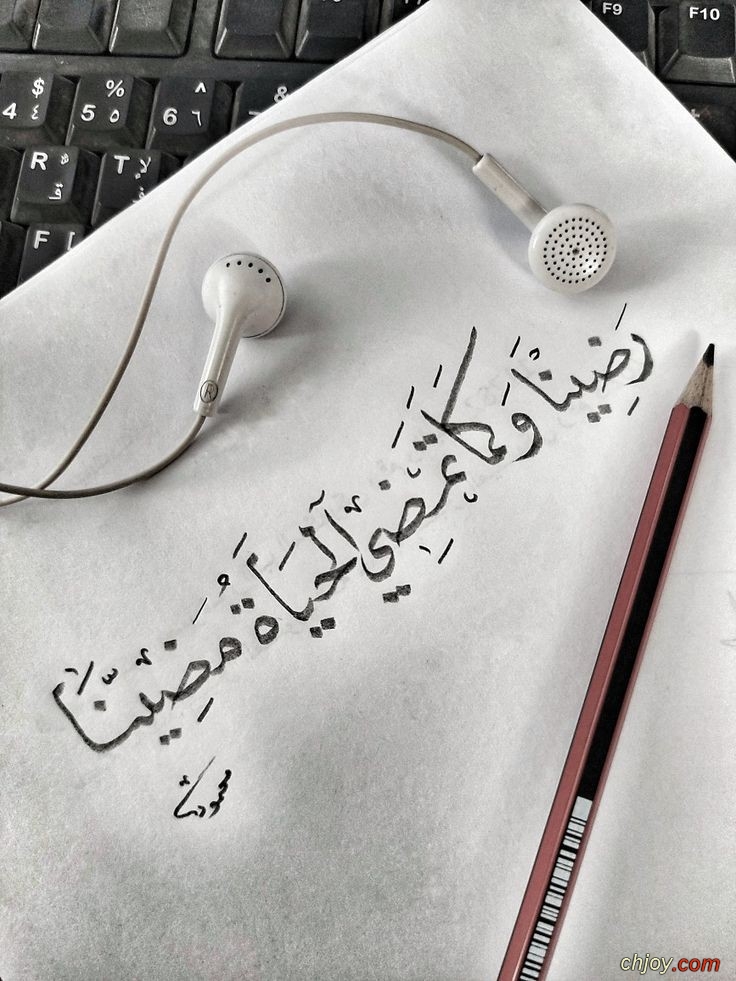 F9
F10
$
4 ٤
%
5 ٥
^
6 ٦
&
R ق
T لإ
F
رَضِينَا وَكَمَا تَمْضِي الْحَيَاةُ مَضَيْنَا
®
chjoy.com